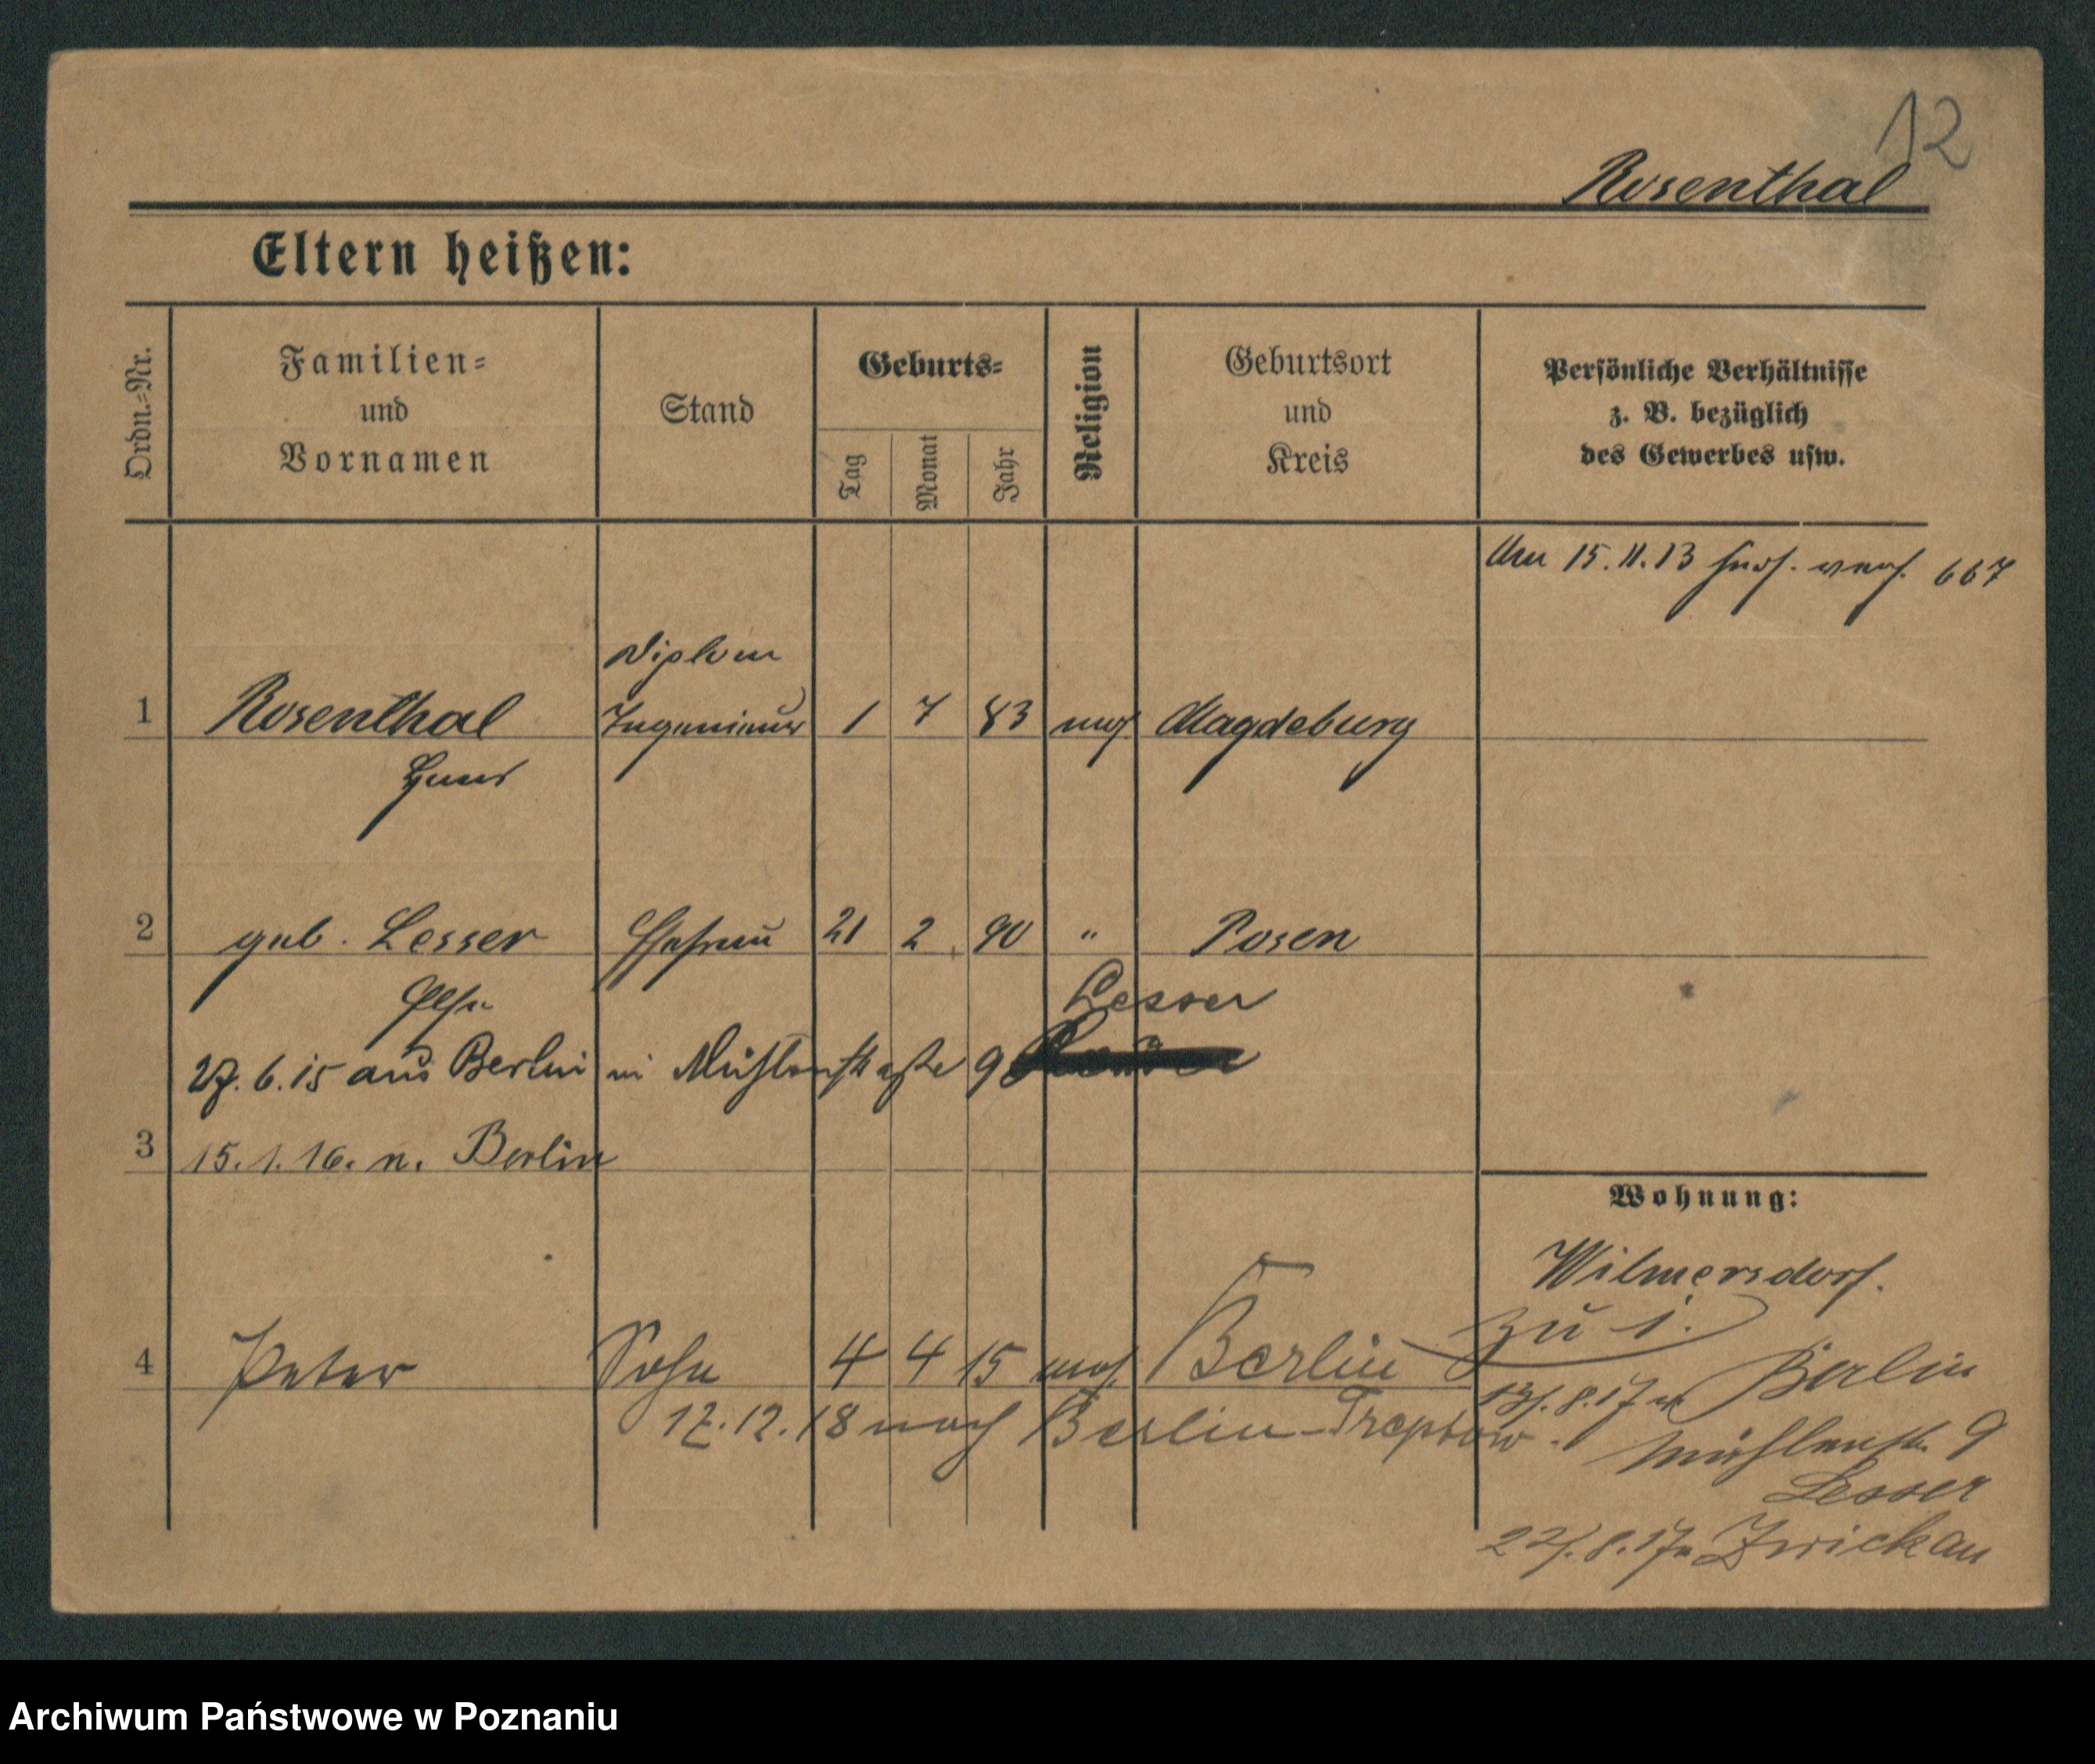 12
Rosenthal
Eltern heißen:
Ordn.-Nr.
Familien-
und
Vornamen
Stand
Geburts-
Tag
Monat
Jahr
Religion
Geburtsort
und
Kreis
Persönliche Verhältnisse
z. B. bezüglich
des Gewerbes usw.
Am 15.11.13 667
Diplom
1 Rosenthal Ingenieur 1 7 83 mos Magdeburg
Hans
2 geb. Lesser Ehefrau 21 2 90 " Posen
Else Lesser
27.6.15 aus Berlin in Mühlenstraße 9
3 15.1.16. n. Berlin
Wohnung:
Wilmersdorf.
zu 1.
4 Peter Sohn 4 4 15 mos. Berlin
13/.8.17 v. Berlin
17.12.18 nach Berlin-Treptow.
Mühlenstr. 9
Lesser
22/.8.17 n Zwickau
Archiwum Państwowe w Poznaniu